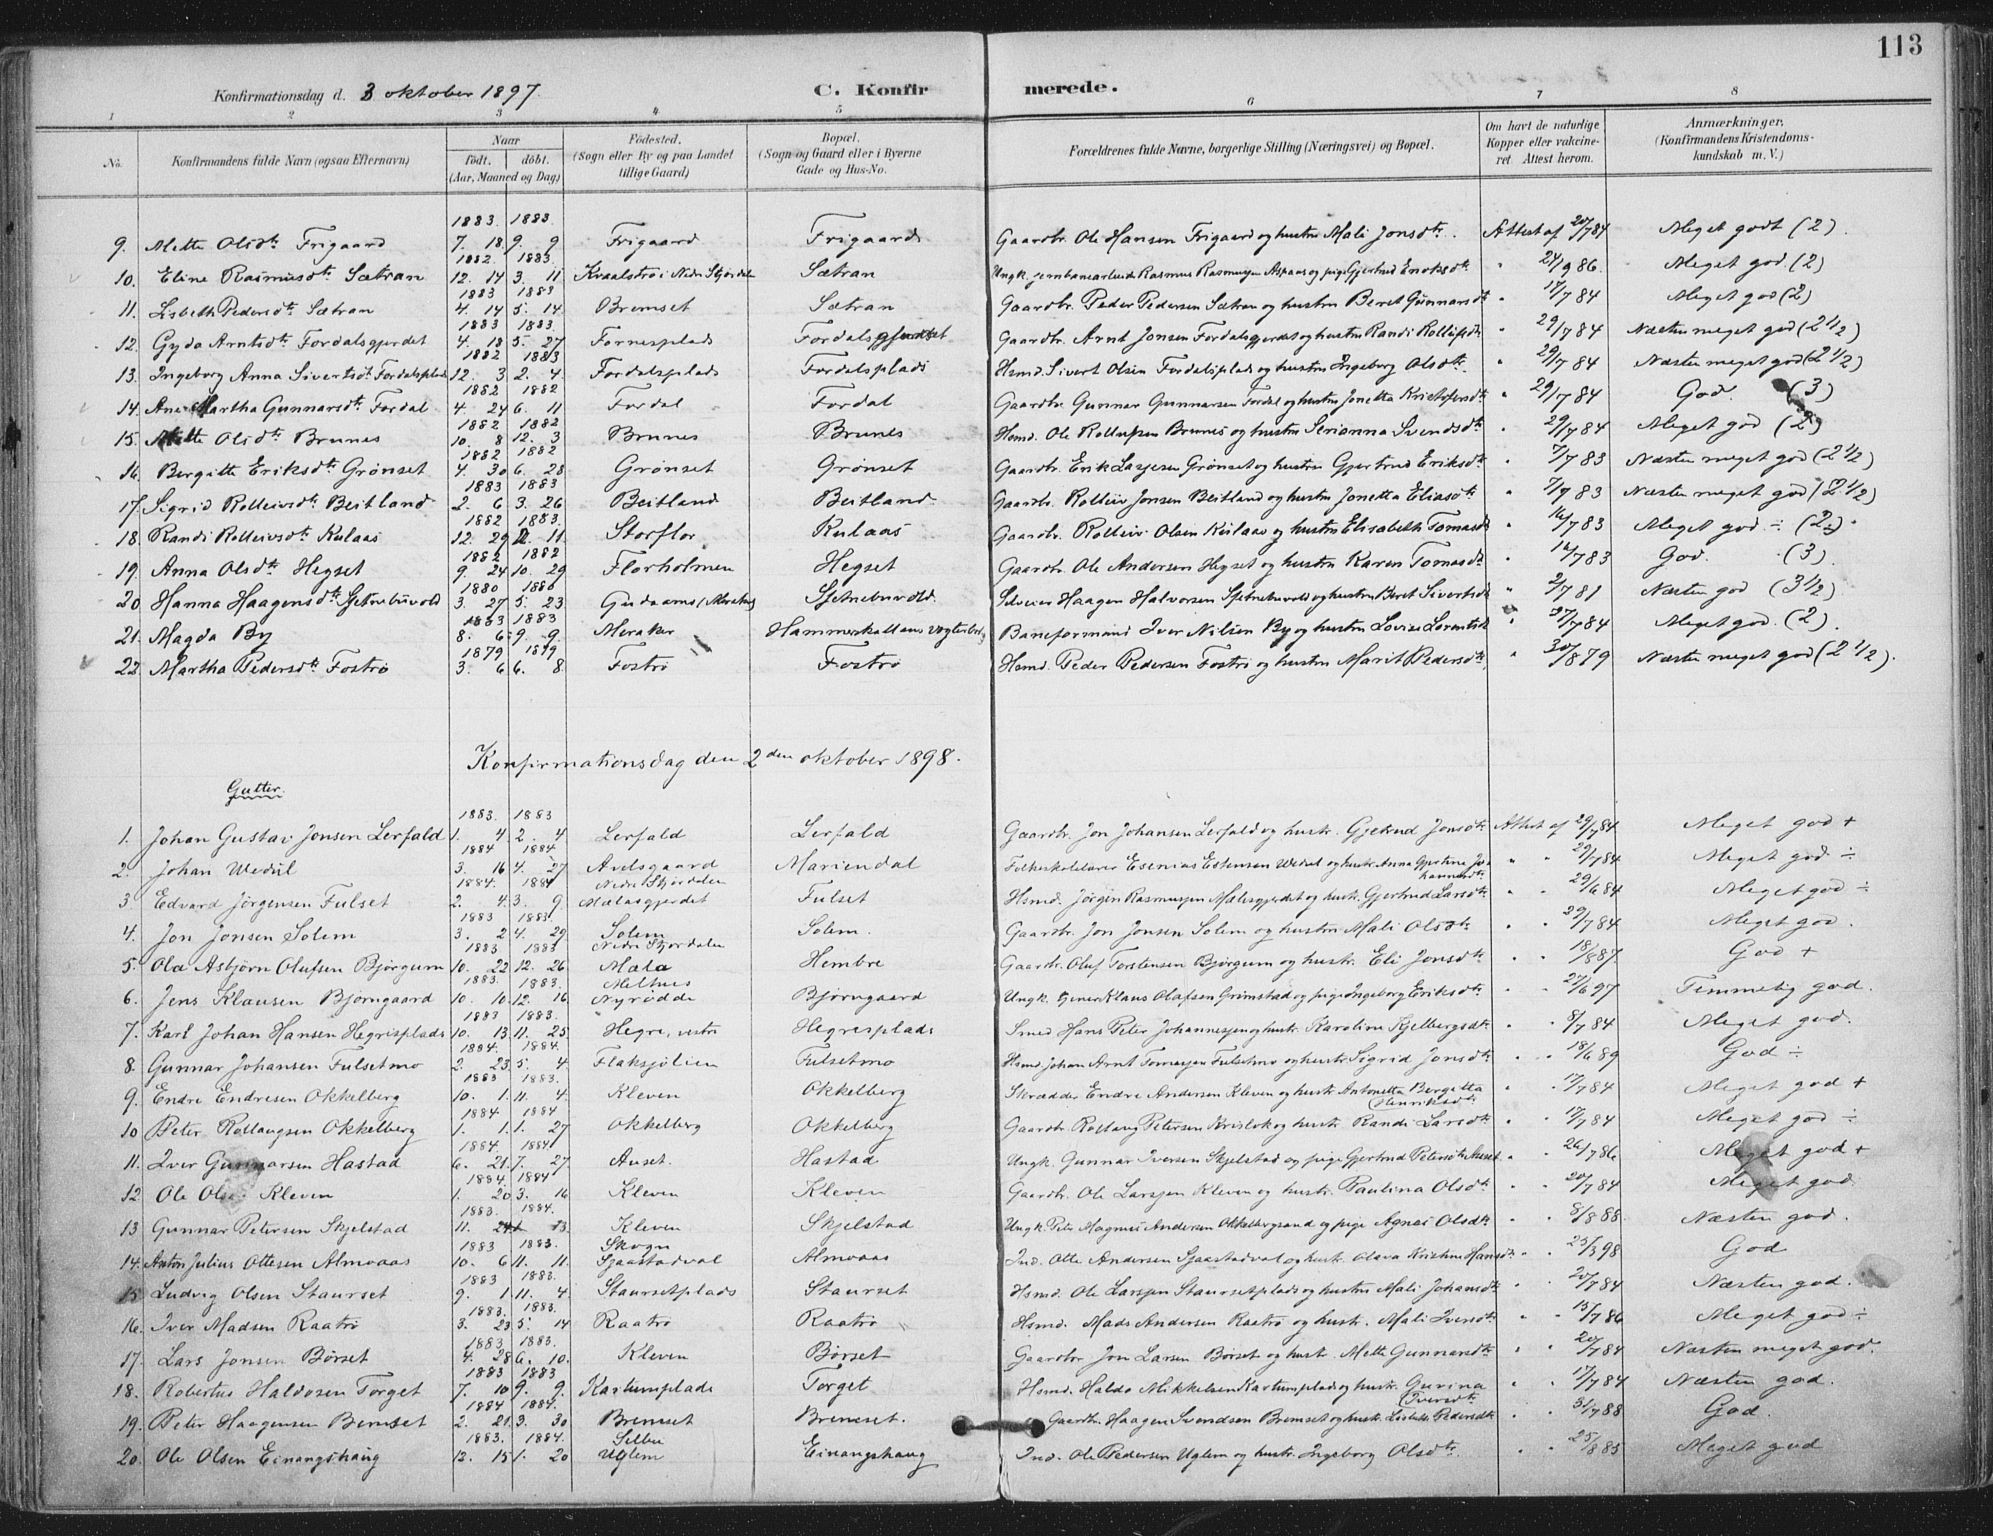 113
Konfirmationsdag d. 3 oktober 1897. C. Konfirmerede.
1 2 3 4 5 6 7 8
No. Konfirmandens fulde Navn (ogsaa Efternavn) Naar født. døbt. (Aar, Maaned og Dag) Fødested. (Sogn eller By og paa Landet tillige Gaard) Bopæl. (Sogn og Gaard eller i Byerne Gade og Hus-No. Forældrenes fulde Navne, borgerlige Stilling (Næringsvei) og Bopæl. Om havt de naturlige Kopper eller vakcineret. Attest herom. Anmærkninger. (Konfirmandens Kristendomskundskab m. V.)
1883. 1883.
9. Mette Olsdtr Frigaard 7. 18 9. 9 Frigaard Frigaard Gaardbr. Ole Hansen Frigaard og hustru Mali Jonsdtr. Attest af 20/7 84 Meget godt (2).
1882. 1883.
10. Eline Rasmusdtr Sætran 12. 14 3. 11 Nedre Stjørdalen Sætran Ungk. jernbanearbeid. Rasmus Rasmusen Aspaas og pige Gjertrud Enoksdtr " 24/9 86. Meget god (2)
1883 1883
11. Lisbeth Pedersdtr Sætran 4. 14 5. 14 Bremset Sætran Gaardbr. Peder Pedersen Sætran og hustru Beret Gunnarsdtr " 17/7 84 Meget god (2)
1883 1883.
12. Gyda Arntsdtr Fordalsgjerdet 4. 18 5. 27 Fornesplads Fordalsgjerdet Gaardbr. Arnt Jonsen Fordalsgjerdet og hustru Randi " 29/7 84 Næsten meget god (2 1/2)
1882 1883
13. Ingeborg Anna Sivertsdtr Fordalsplads 12. 3 2. 4. Fordalsplads Fordalsplads Hsmd. Sivert Olsen Fordalsplads og hustru Ingeborg Olsdtr. " 29/7 84 Næsten meget god (2 1/2)
1882 1882
14. Ane Martha Gunnarsdtr Fordal 4. 24 6. 11 Fordal Fordal Gaardbr. Gunnar Gunnarsen Fordal og hustru Jonetta Kristofersdtr " 29/7 84 God. (3)
1882 1882
15. Mette Olsdtr Brunes 10. 8 12. 3 Brunes Brunes Hsmd. Ole Rollufsen Brunes og hustru Serianna Svendsdtr " 29/7 84 Meget god (2)
1882 1882
16. Bergitte Eriksdtr Grønset 4. 30 6. 28 Grønset Grønset Gaardbr. Erik Larsen Grønset og hustru Gjertrud Eriksdtr " 7/7 83 Næsten meget god (2 1/2)
1883 1883
17. Sigrid Rolleivsdtr Beitland 2. 6 3. 26 Beitland Beitland Gaardbr. Rolleiv Jonsen Beitland og hustru Jonetta Eliasdtr " 7/9 83 Næsten meget god (2 1/2)
1882 1883.
18. Randi Rolleivsdtr Kulaas 12. 29 2. 11 Storflor Kulaas Gaardbr. Rolleiv Olsen Kulaas og hustru Elisabeth Tomasdtr " 16/7 83 Meget god ÷ (2÷)
1882 1882
19. Anna Olsdtr Hegset 9. 24 10. 29 Florholmen Hegset Gaardbr. Ole Andersen Hegset og hustru Karen Tomasdtr " 16/7 83 God. (3)
1880 1880
20. Hanna Haagensdtr 3. 27 5. 23 Gudaams/Meraker Haagen Halvorsen og hustru Beret Sivertsdtr " 2/7 81 Næsten god (3 1/2)
1883 1883
21. Magda By 8. 6 9. 9. Meraker Hammerkallens vogterbolig Baneformand Iver Nilsen By og hustru Lovise Lorentsdtr " 27/7 84 Meget god. (2)
1879 1879
22. Martha Pedersdtr Fostrø 3. 6 6. 8 Fostrø Fostrø Hsmd. Peder Pedersen Fostrø og hustru Marit Pedersdtr " 30/8 79 Næsten meget god (2 1/2).
Konfirmationsdag den 2den oktober 1898.
Gutter.
1883. 1883
1. Johan Gustav Jonsen Lerfald 1. 4 2. 4 Lerfald Lerfald Gaardbr. Jon Johansen Lerfald og hustr. Gjertrud Jonsdtr Attest af 29/7 84 Meget god +
1884 1884
2. Johan Wedul 3. 16 4. 27 Avelsgaard Mariendal Folkeskolelærer Esenias Estensen Wedul og hustr. Anna Gjertine Johannesdtr " " 29/7 84 Meget god ÷
1884. 1884 Nedre Stjørdalen
3 Edvard Jørgensen Fulset 2. 4. 3. 9. Mælasgjerdet Fulset Hsmd. Jørgen Rasmussen Mælasgjerdet og hustr. Gjertrud Larsdtr " " 29/6 84 Meget god ÷
1883 1883
4. Jon Jonsen Solem 3. 2 4. 29 Solem Solem. Gaardbr. Jon Jonsen Solem og hustru Mali Olsdtr " " 29/7 84 Meget god.
1883. 1883 Nedre Stjørdalen
5. Ole Asbjørn Olufsen Bjørgum 10. 22 12. 26 Mæla Hembre Gaardbr. Oluf Torstensen Bjørgum og hustr. Eli Jonsdtr " " 18/8 87. God +
1883. 1883. Melhus
6. Jens Klausen Bjørngaard 10. 10 12. 16 Nyrødde Bjørngaard Ungk. tjener Klaus Olafsen Grimstad og pige Ingeborg Eriksdtr " " 27/6 97 Temmelig god.
1883 1883.
7. Karl Johan Hansen Hegresplads 10. 13 11. 25 Hegre, vestre Hegresplads Smed Hans Peter Johannessen og hustr. Karoline Kjelbergsdtr " " 8/7 84 Meget god.
1884. 1884.
8. Gunnar Johansen Fulsetmo 2. 23 5. 4 Flaksjølien Fulsetmo Hsmd. Johan Arnt Tomassen Fulsetmo og hustr. Sigrid Jonsdtr " " 18/6 89 God ÷
1883 1883.
9. Endre Endresen Okkelberg 10. 1. 11. 4. Kleven Okkelberg Skrædder Endre Andersen Kleven og hustr. Antonetta Bergitta Henriksdtr " " 17/7 84 Meget god +
1884. 1884
10 Peter Rollaugsen Okkelberg 1. 1. 1. 27 Okkelberg Okkelberg Gaardbr. Rollaug Petersen Krislok og hustr. Randi Larsdtr " " 17/7 84 Meget god ÷
1884. 1884
11. Iver Gunnarsen Hastad 6. 21. 7. 27 Auset. Hastad Ungk. Gunnar Iversen Skjelstad og pige Gjertrud Petersdtr Auset " " 26/7 86 Meget god +
1884. 1884
12 Ole Olsen Kleven 1. 20 3. 16 Kleven Kleven Gaardbr. Ole Larssen Kleven og hustr. Paulina Olsdtr " " 20/7 84 Meget god
1883. 1884.
13 Gunnar Petersen Skjelstad 11. 24 1. 13. Kleven Skjelstad Ungk. Peter Magnus Andersen Okkelbergsand og pige Agnes Olsdtr " " 8/8 88. Næsten god.
1883 1883. Skogn
14. Anton Julius Ottesen Almoaas 10. 6 11. 11. Sjaastadval Almoaas Ind. Otte Andersen Sjaastadval og hustr. Olava Kristine Hansdtr " " 23/3 98 God
1883 1883.
15 Ludvig Olsen Staurset 9. 1 11. 4 Staursetplads Staurset Hsmd. Ole Larssen Staursetplads og hustru Mali Johansdtr " " 20/7 84 Næsten god.
1883. 1883.
16. Iver Madsen Raatrø 3. 23 5. 14 Raatrø Raatrø Hsmd. Mads Andersen Raatrø og hustr. Mali " " 15/7 86 Meget god ÷
1883 1883.
17. Lars Jonsen Børset 4. 28 6. 10. Kleven Børset Gaardbr Jon Larsen Børset og hustr. Mette Gunnarsdtr " " 20/7 84 Næsten meget god.
1883 1883
18. Robertus Haldosen Torget 7. 10 9. 9. Kastumplads Torget Hsmd. Haldo Mikkelsen Kastumplads og hustr. Gurina Iversdtr " " 17/7 84 Næsten god.
1884 1884.
19. Peter Haagensen Bremset 2. 21. 3. 30 Bremset Bremset. Gaardbr. Haagen Svendsen Bremset og hustr. Lisbeth Pedersdtr " " 31/7 88 God.
1883. 1884. Selbu
20. Ole Olsen Einangshaug 12. 15 1. 20 Uglem Einangshaug Ind. Ole Pedersen Uglem og hustr. Ingeborg Olsdtr. " " 25/8 85 Meget god